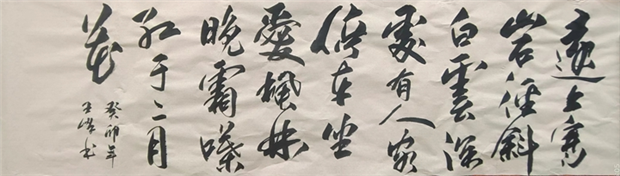 遠上寒
山石径斜
白雲深
處有人家
停车坐
愛楓林
晚霜葉
红于二月
花
癸卯年
王书